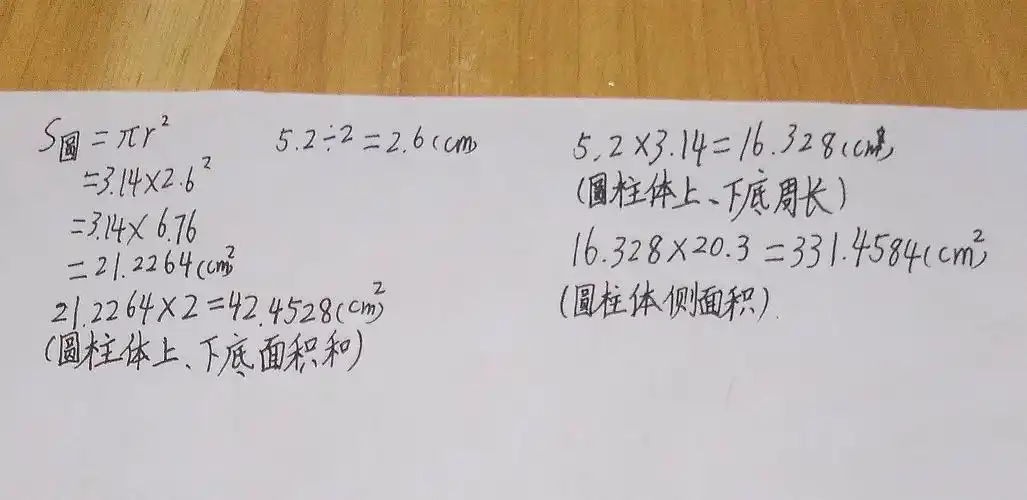 S圆=πr²
5.2÷2=2.6(cm)
=3.14×2.6²
=3.14×6.76
=21.2264(cm²)
21.2264×2=42.4528(cm²)
(圆柱体上、下底面积和)
5.2×3.14=16.328(cm)
(圆柱体上、下底周长)
16.328×20.3=331.4584(cm²)
(圆柱体侧面积).